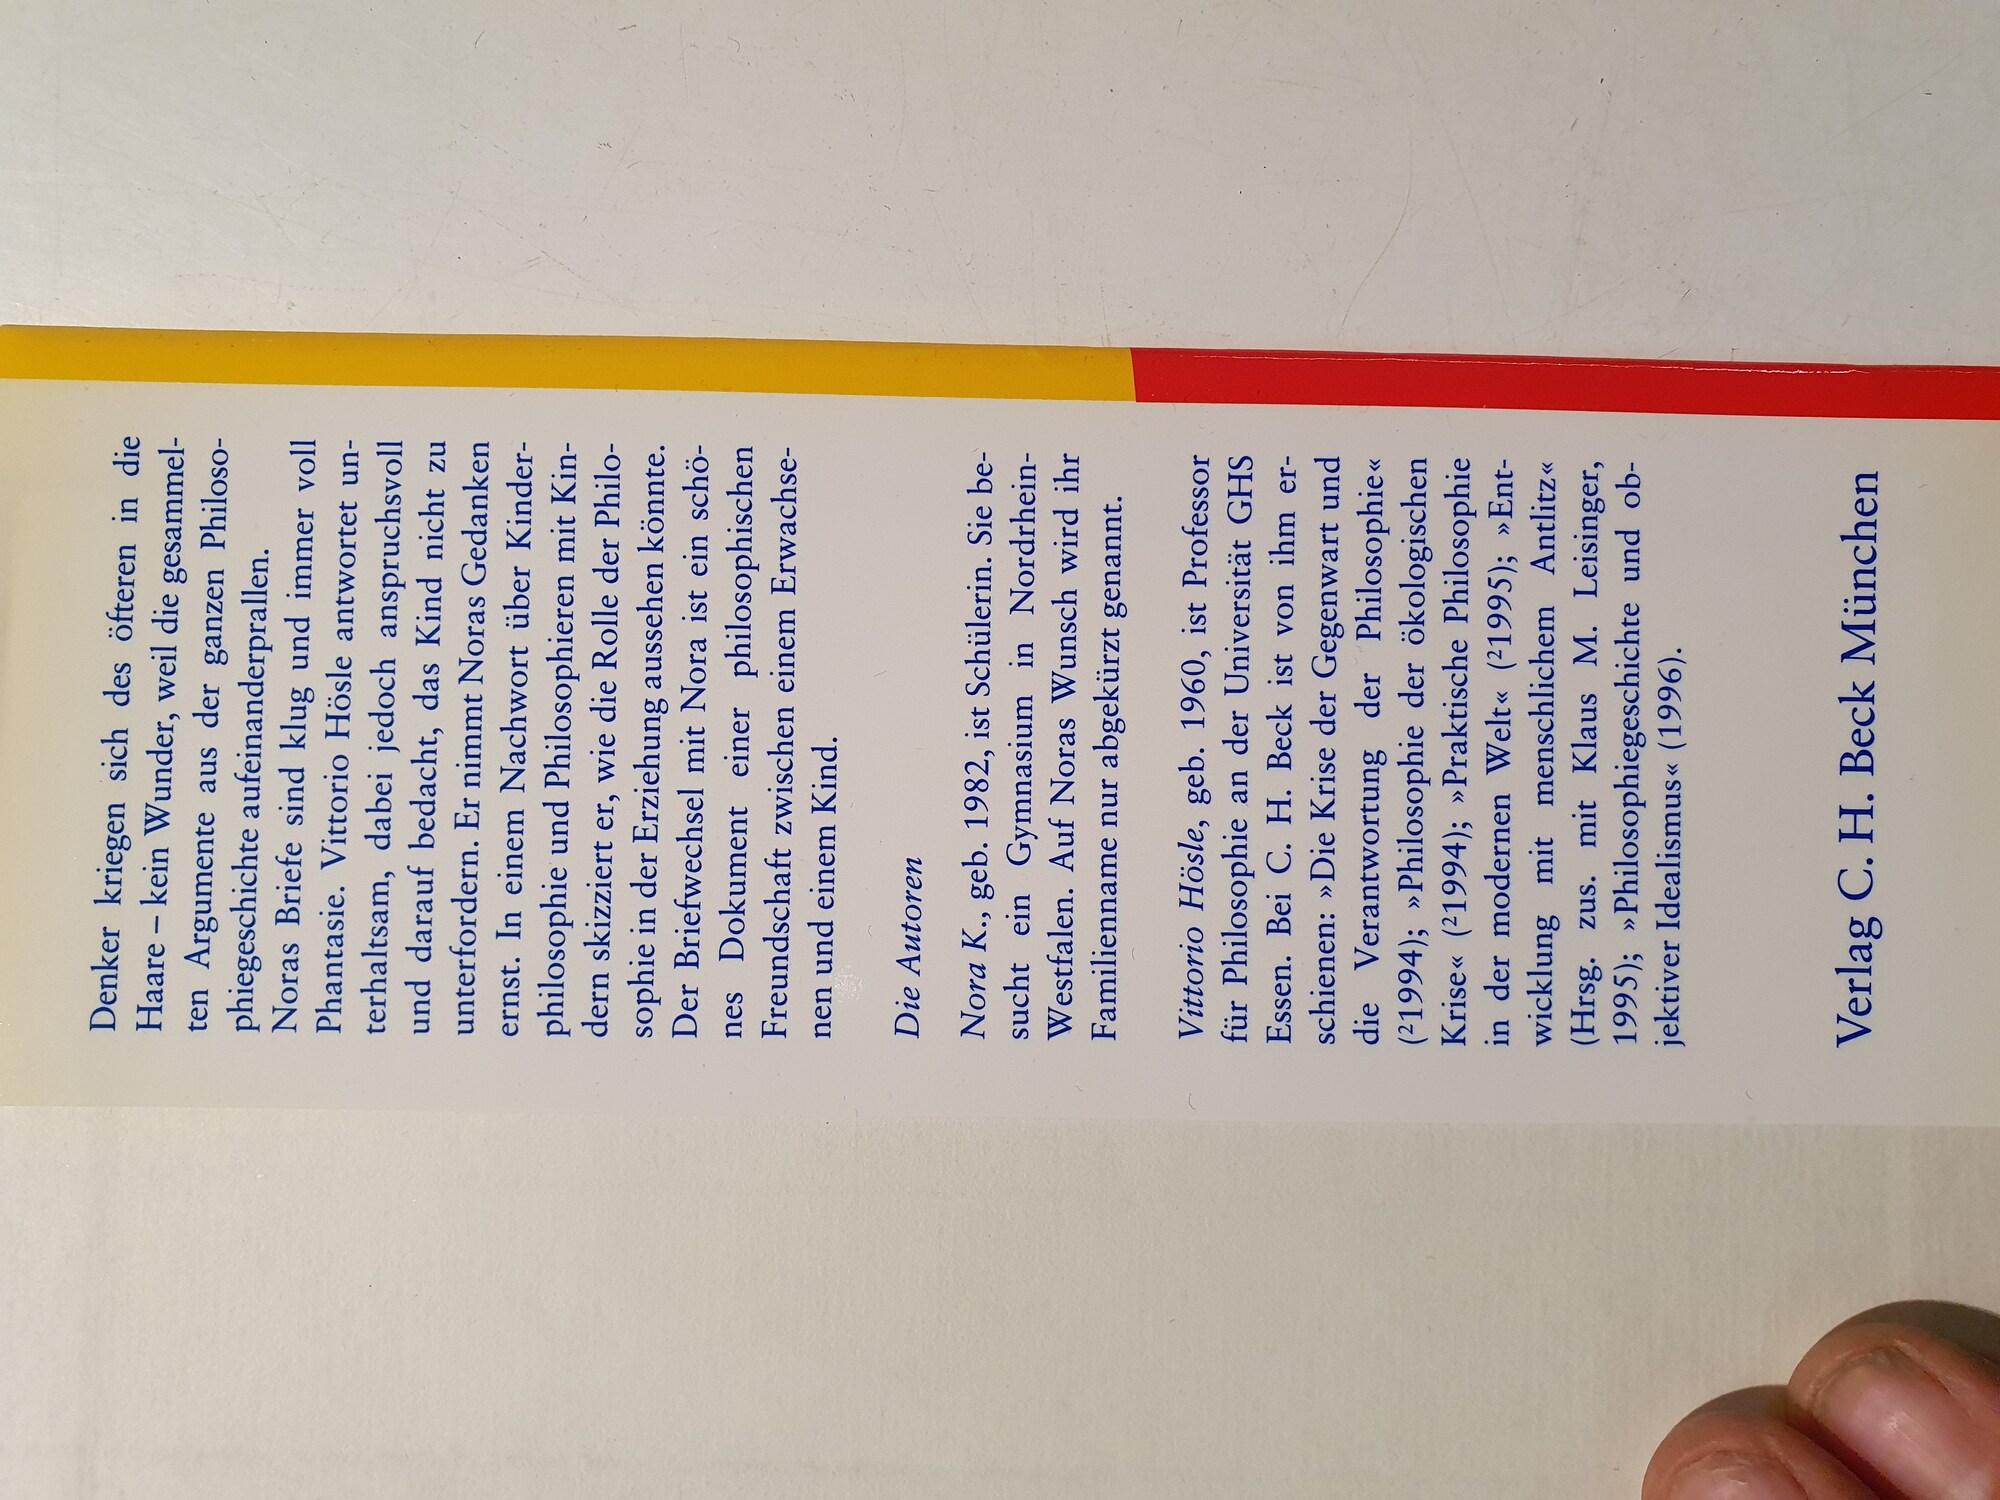 Denker kriegen sich des öfteren in die
Haare – kein Wunder, weil die gesammel-
ten Argumente aus der ganzen Philoso-
phiegeschichte aufeinanderprallen.
Noras Briefe sind klug und immer voll
Phantasie. Vittorio Hösle antwortet un-
terhaltsam, dabei jedoch anspruchsvoll
und darauf bedacht, das Kind nicht zu
unterfordern. Er nimmt Noras Gedanken
ernst. In einem Nachwort über Kinder-
philosophie und Philosophieren mit Kin-
dern skizziert er, wie die Rolle der Philo-
sophie in der Erziehung aussehen könnte.
Der Briefwechsel mit Nora ist ein schö-
nes Dokument einer philosophischen
Freundschaft zwischen einem Erwachse-
nen und einem Kind.
Die Autoren
Nora K., geb. 1982, ist Schülerin. Sie be-
sucht ein Gymnasium in Nordrhein-
Westfalen. Auf Noras Wunsch wird ihr
Familienname nur abgekürzt genannt.
Vittorio Hösle, geb. 1960, ist Professor
für Philosophie an der Universität GHS
Essen. Bei C. H. Beck ist von ihm er-
schienen: »Die Krise der Gegenwart und
die Verantwortung der Philosophie«
(²1994); »Philosophie der ökologischen
Krise« (²1994); »Praktische Philosophie
in der modernen Welt« (²1995); »Ent-
wicklung mit menschlichem Antlitz«
(Hrsg. zus. mit Klaus M. Leisinger,
1995); »Philosophiegeschichte und ob-
jektiver Idealismus« (1996).
Verlag C. H. Beck München